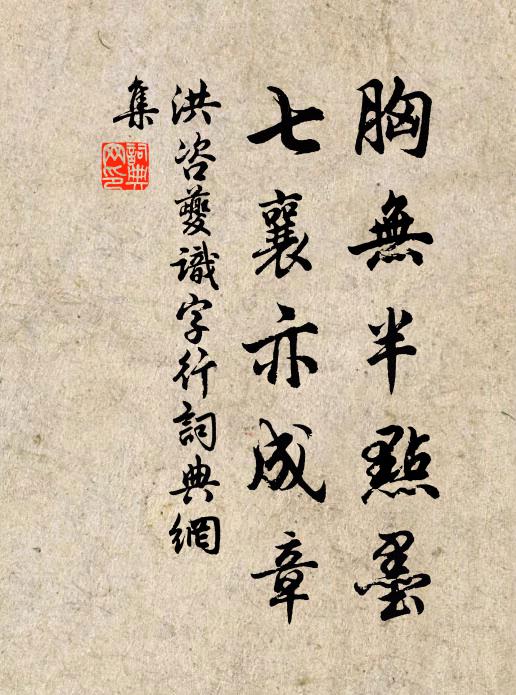 胸無半點墨
七襄亦成章
洪咨夔識字行詞典網
集
詞典
网印